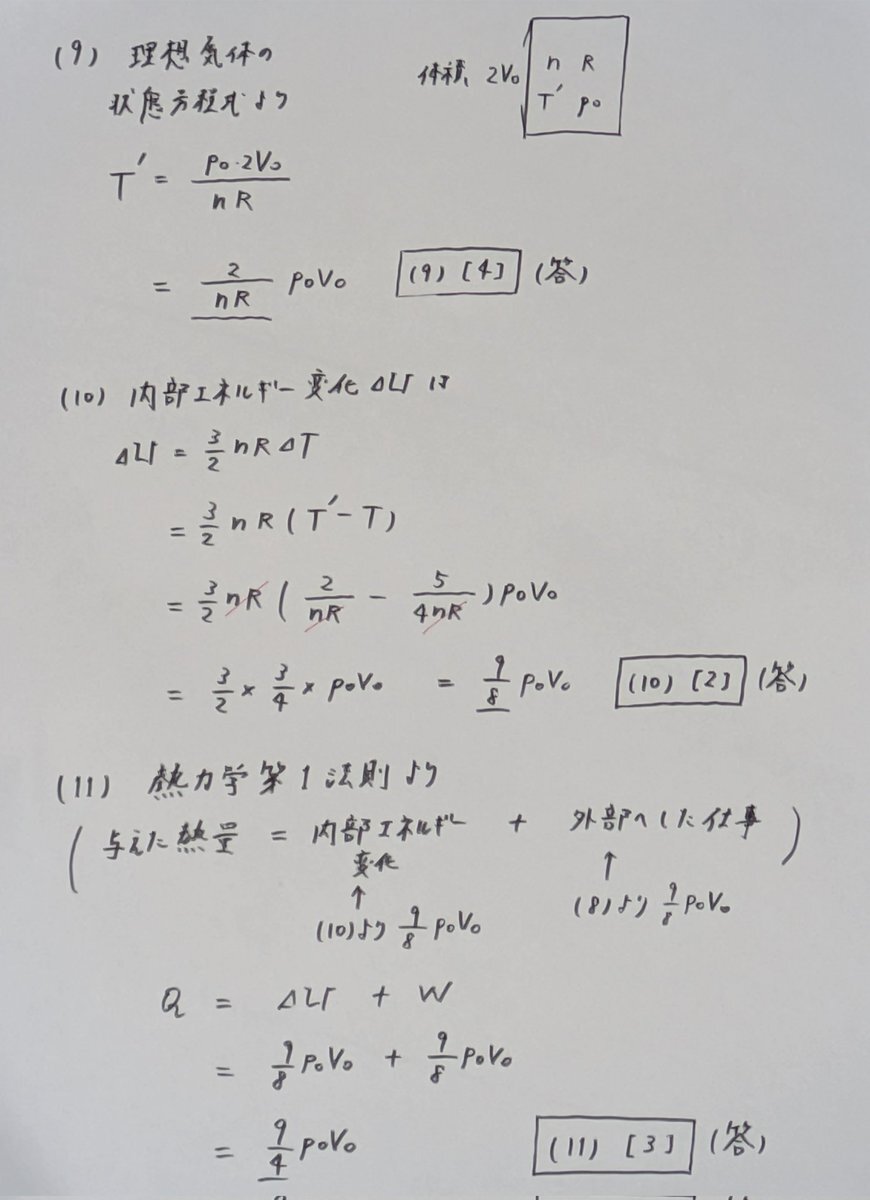 (9) 理想気体の
状態方程式より
体積 2V₀
n R
T′ p₀
T′ = p₀·2V₀ / nR
= 2/nR p₀V₀ (9) [4] (答)
(10) 内部エネルギー変化 ΔU は
ΔU = 3/2 nRΔT
= 3/2 nR (T′ - T)
= 3/2 nR ( 2/nR - 5/4nR ) p₀V₀
= 3/2 × 3/4 × p₀V₀ = 9/8 p₀V₀ (10) [2] (答)
(11) 熱力学第1法則より
( 与えた熱量 = 内部エネルギー変化 + 外部へした仕事 )
↑ ↑
(10)より 9/8 p₀V₀ (8)より 9/8 p₀V₀
Q = ΔU + W
= 9/8 p₀V₀ + 9/8 p₀V₀
= 9/4 p₀V₀ (11) [3] (答)